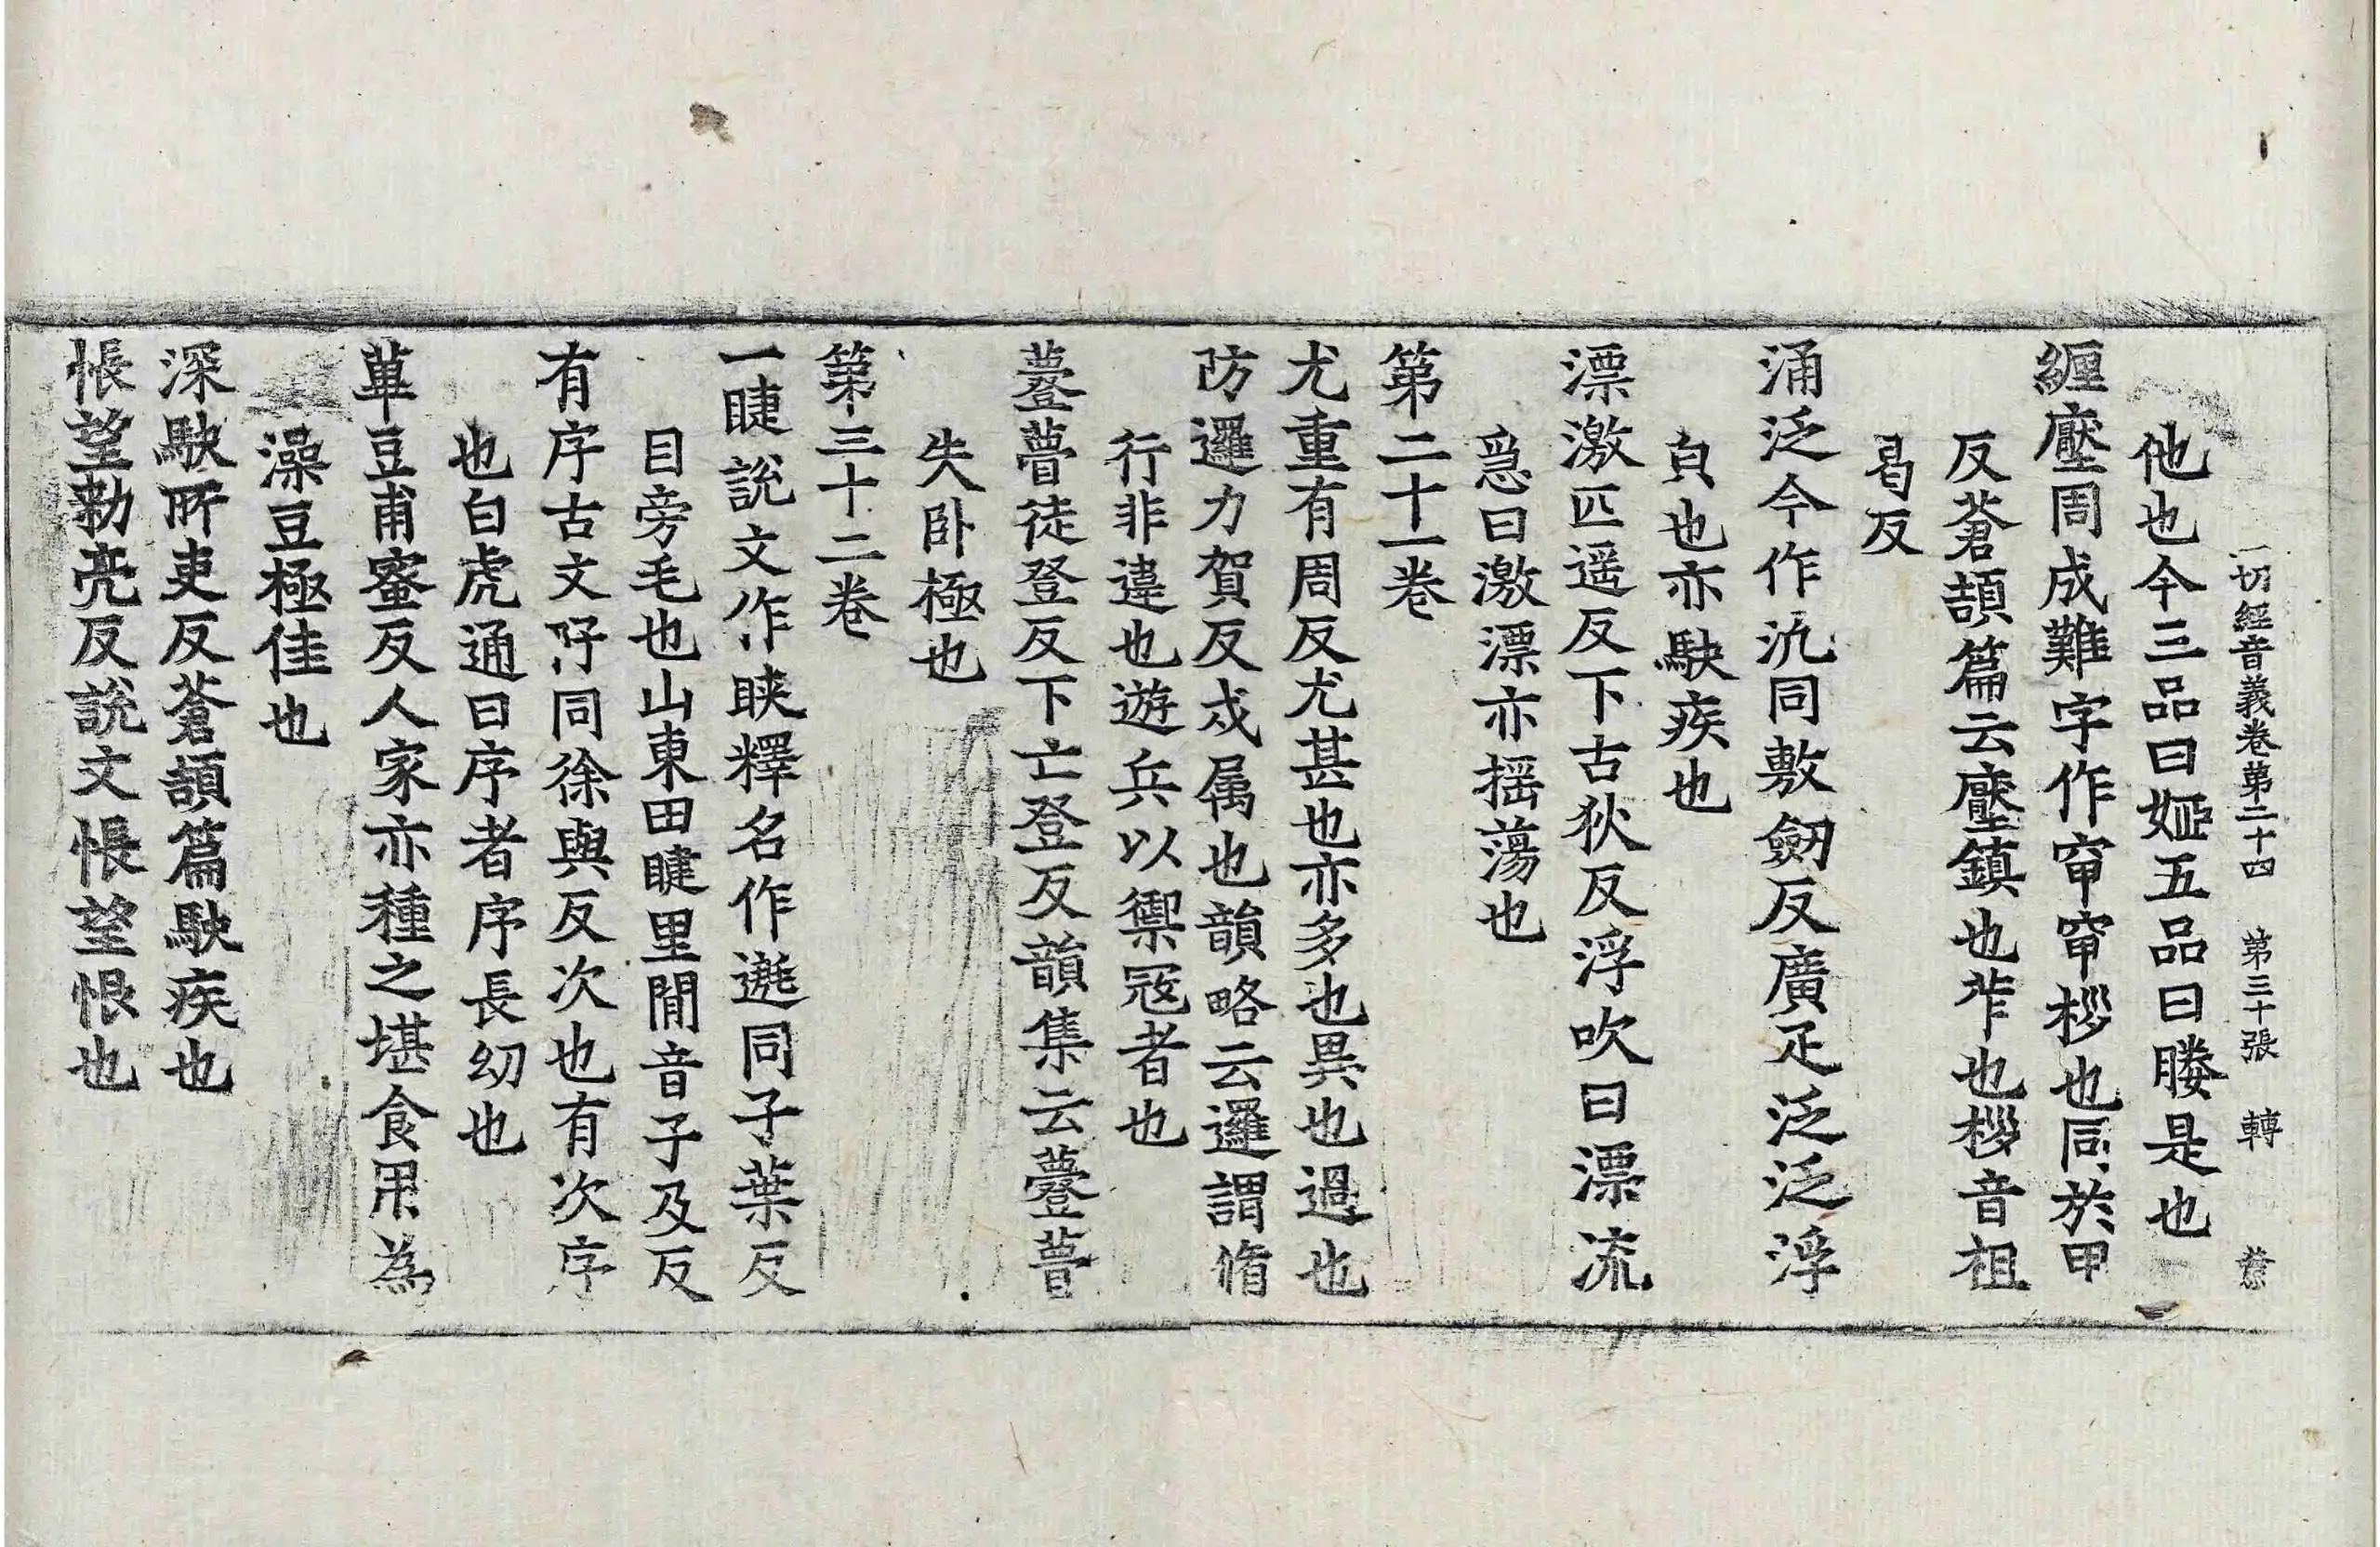 一切經音義卷第二十四 第三十張 轉
他也今三品曰婭五品曰媵是也
纒壓周成難字作窄窄桚也同於甲
反蒼頡篇云壓鎮也笮也桚音祖
曷反
涌泛今作汎同敷劒反廣疋泛泛浮
皃也亦駃疾也
漂激匹遥反下古狄反浮吹曰漂流
急曰激漂亦揺蕩也
第二十一卷
尤重有周反尤甚也亦多也異也過也
防邏力賀反戍属也韻略云邏謂脩
行非違也遊兵以禦冦者也
薹瞢徒登反下亡登反韻集云薹瞢
失卧極也
第三十二卷
一睫說文作䀹釋名作𨗸同子葉反
目旁毛也山東田睫里間音子及反
有序古文㡰同徐與反次也有次序
也白虎通曰序者序長幼也
蓽豆甫蜜反人家亦種之堪食用為
澡豆極佳也
深駃所吏反蒼頡篇駃疾也
悵望勑亮反說文悵望恨也